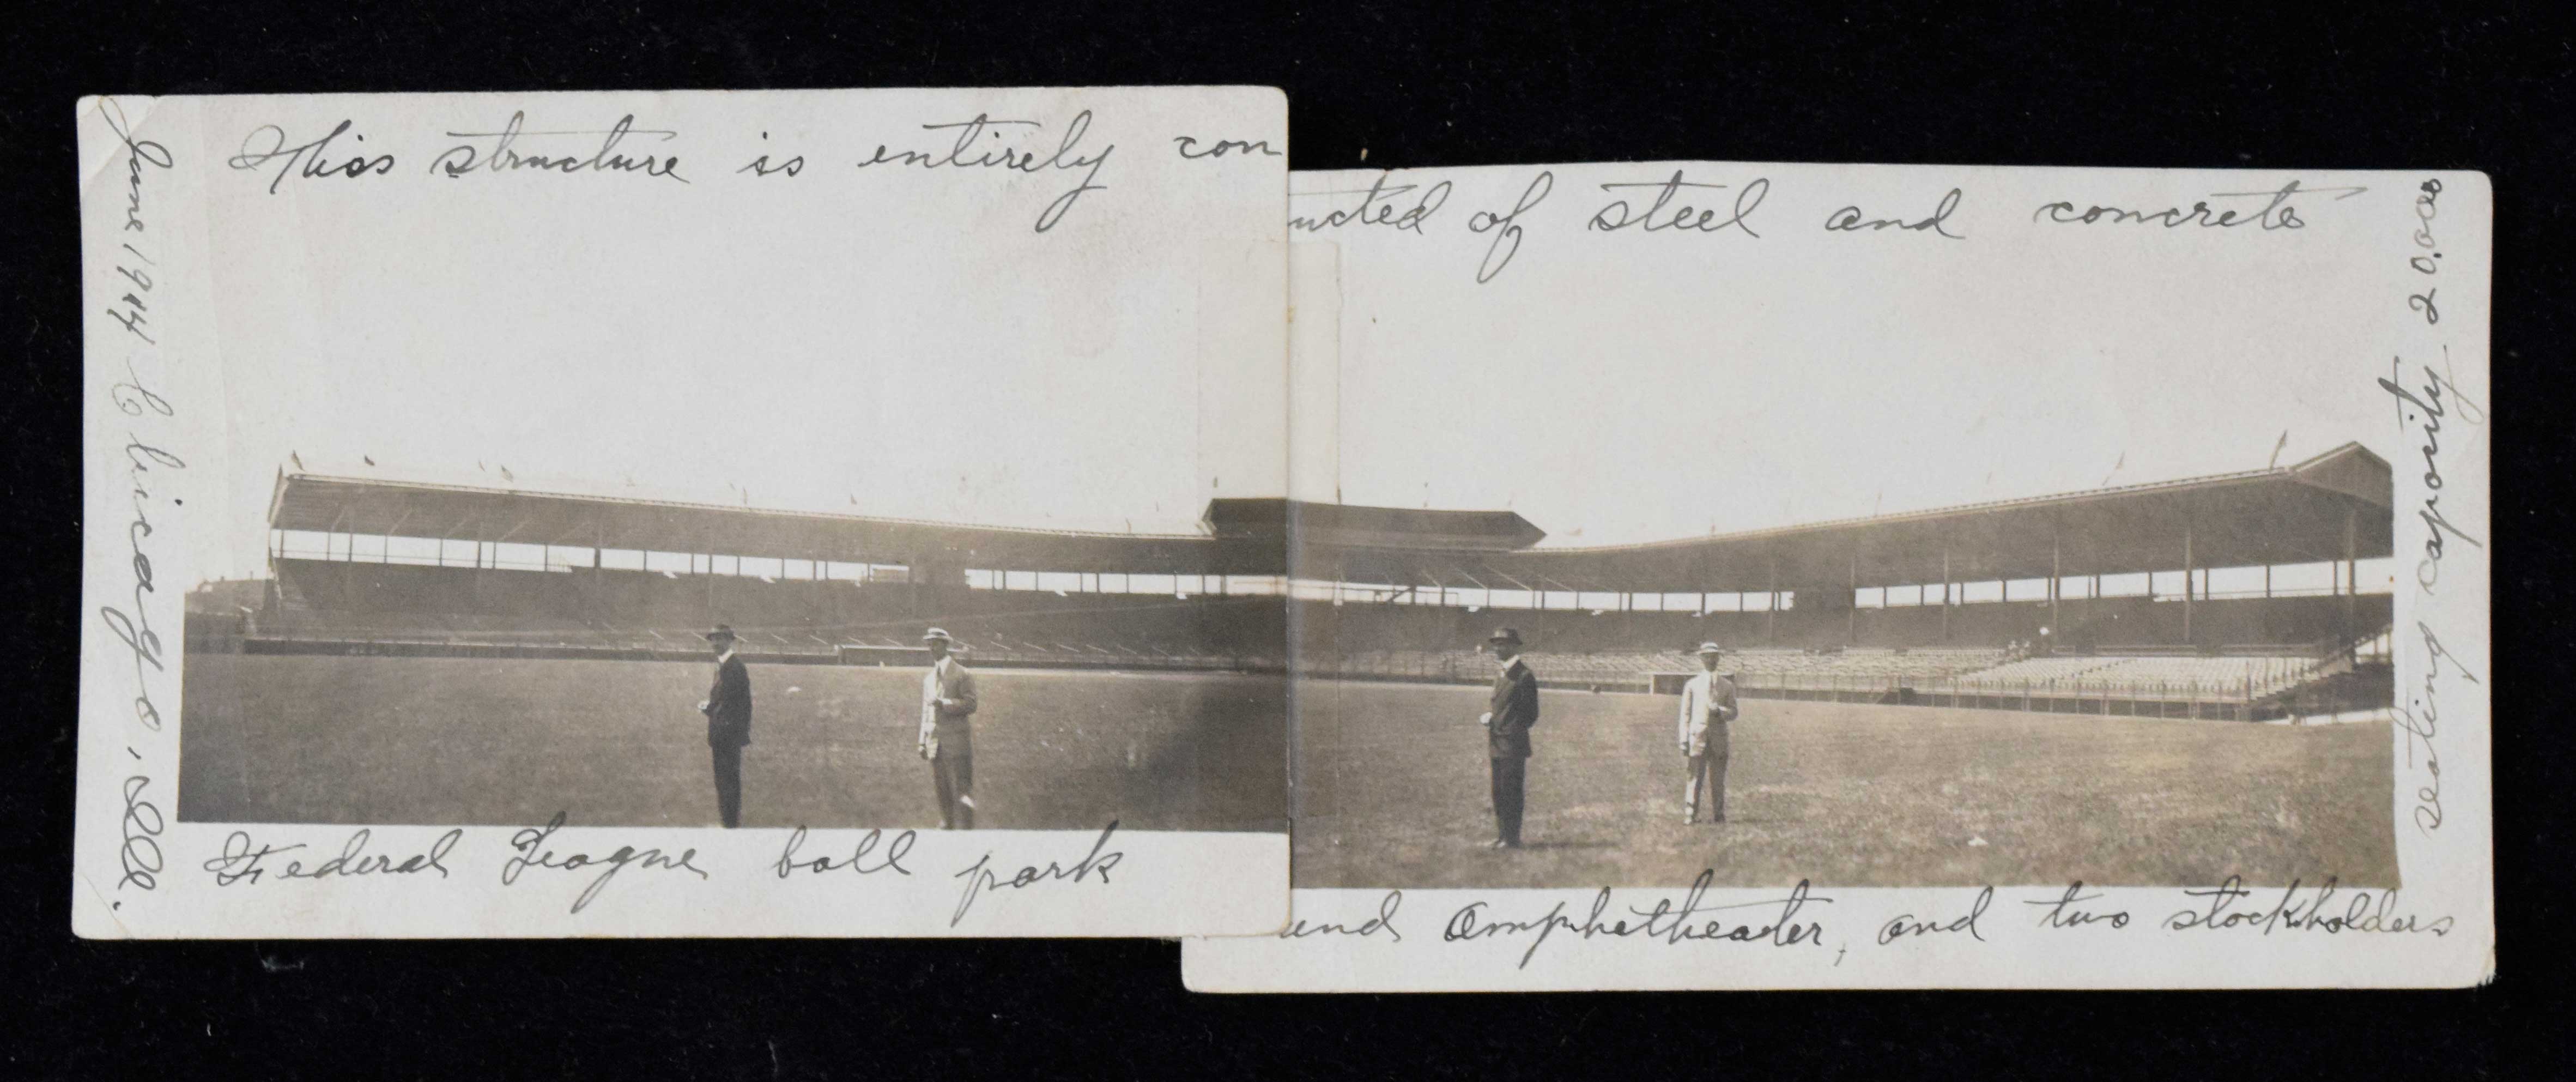 This structure is entirely con
ucted of steel and concrete
June 1914 Chicago, Ill.
seating caposity 20,000
Federal League ball park
and Amphetheater, and two stockholders